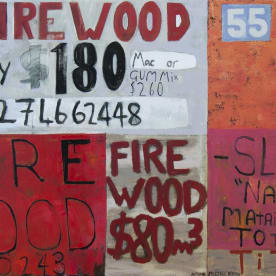 IREWOOD
55
Y $180
Mac or
GUM Mix
$260
274662448
RE
OOD
0243
FIRE
WOOD
$80m³
-SL
'NA
MATA
TO
Ti